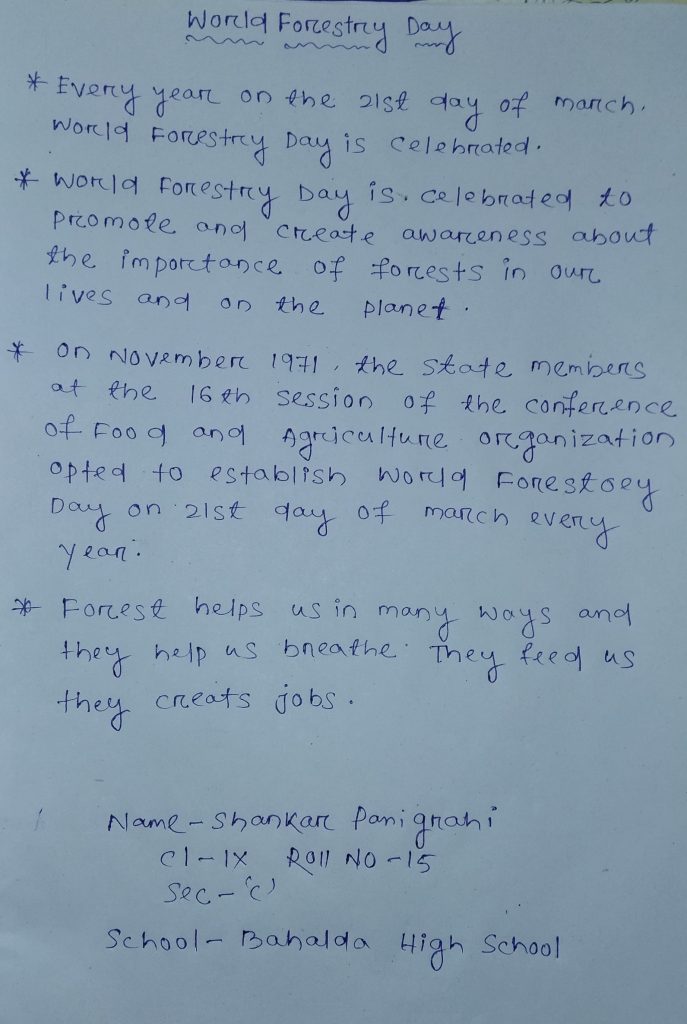 World Forestry Day
* Every year on the 21st day of march.
World Forestry Day is celebrated.
* World Forestry Day is. celebrated to
promote and create awareness about
the importance of forests in our
lives and on the planet.
* on November 1971, the state members
at the 16th session of the conference
of Food and Agriculture organization
opted to establish World Forestoey
Day on 21st day of march every
year.
* Forest helps us in many ways and
they help us breathe. They feed us
they creats jobs.
Name - Shankar Panigrahi
Cl - IX Roll No - 15
Sec - 'c'
School - Bahalda High School